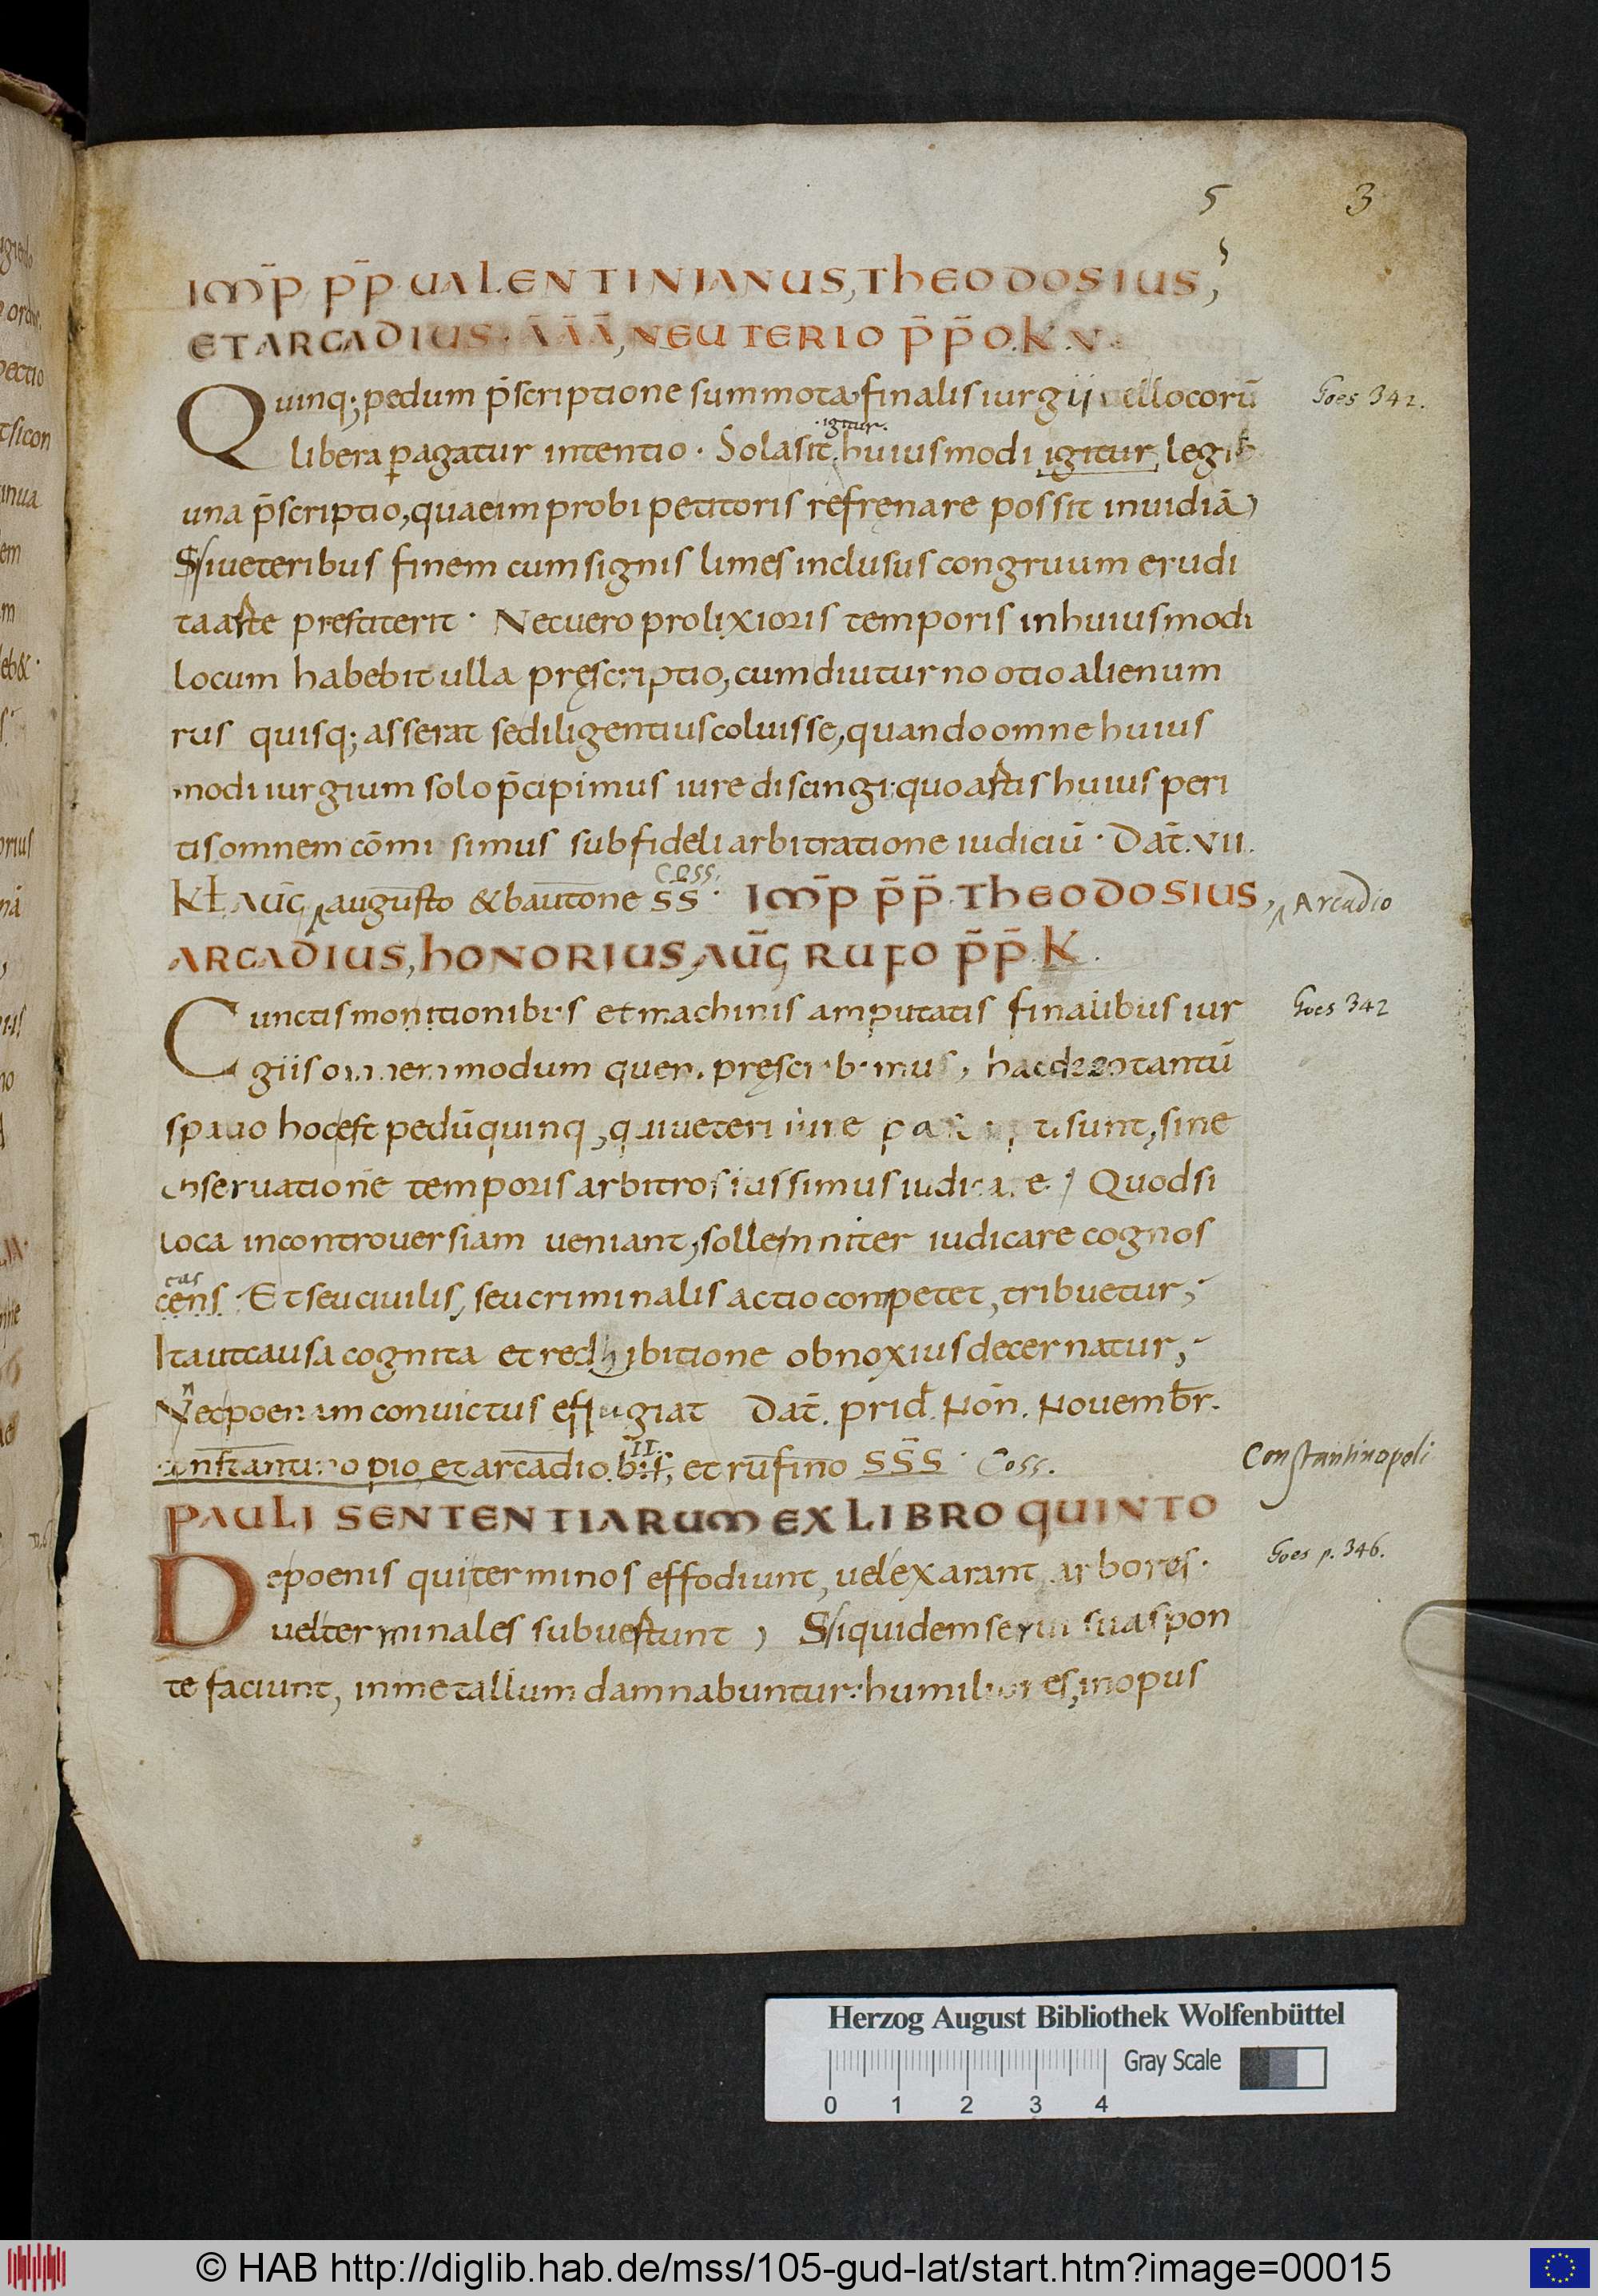 5 3
IMP̄ PP̄ UALENTINIANUS, THEODOSIUS,
ET ARCADIUS. ĀĀĀ, NEUTERIO P̄P̄O. K. V.
Quinq; pedum p̄scriptione summota finalis iurgii vel locorū
Goes 342.
igitur.
libera pagatur intentio. Sola sit huiusmodi igitur legis
una p̄scriptio, quae improbi petitoris refrenare possit inuidiā
Si ueteribus finem cum signis limes inclusus congruum erudi
ta arte prestiterit. Nec uero prolixioris temporis in huiusmodi
locum habebit ulla pręscriptio, cum diuturno otio alienum
rus quisq; asserat se diligentius coluisse, quando omne huius
modi iurgium solo p̄cipimus iure discingi. quo artis huius peri
tis omnem cōmi simus sub fideli arbitratione iudiciū. Dat̄. VII.
Coss.
Kł AUḠ augusto & bautone SS̄. IMP̄ P̄P̄. THEODOSIUS,
Arcadio
ARCADIUS, HONORIUS, AUḠ RUFO P̄P̄. K.
Cunctis monitionibus et machinis amputatis finalibus iur
Goes 342
giis omnem modum quem pręscribimus, hac de tantū
spatio hoc est pedū quinq, qui ueteri iure sunt, sine
obseruatione temporis arbitros iussimus iudicare. Quod si
loca in controuersiam ueniant, sollemniter iudicare cognos
cas
cens. Et seu ciuilis, seu criminalis actio competet, tribuetur,
Ita ut causa cognita et redhibitione obnoxius decernatur,
Nec poenam conuictus effugiat Dat̄. prid. Non. Nouemb̄r.
II.
constantino pio, et arcadio et rufino SS̄S. Coss.
Constantinopoli
PAULI SENTENTIARUM EX LIBRO QUINTO
De poenis qui terminos effodiunt, uel exarant arbores.
Goes p. 346.
uel terminales subuertunt, Si quidem serui sua spon
te faciunt, in metallum damnabuntur. humiliores, in opus
Herzog August Bibliothek Wolfenbüttel
0 1 2 3 4 Gray Scale
© HAB http://diglib.hab.de/mss/105-gud-lat/start.htm?image=00015